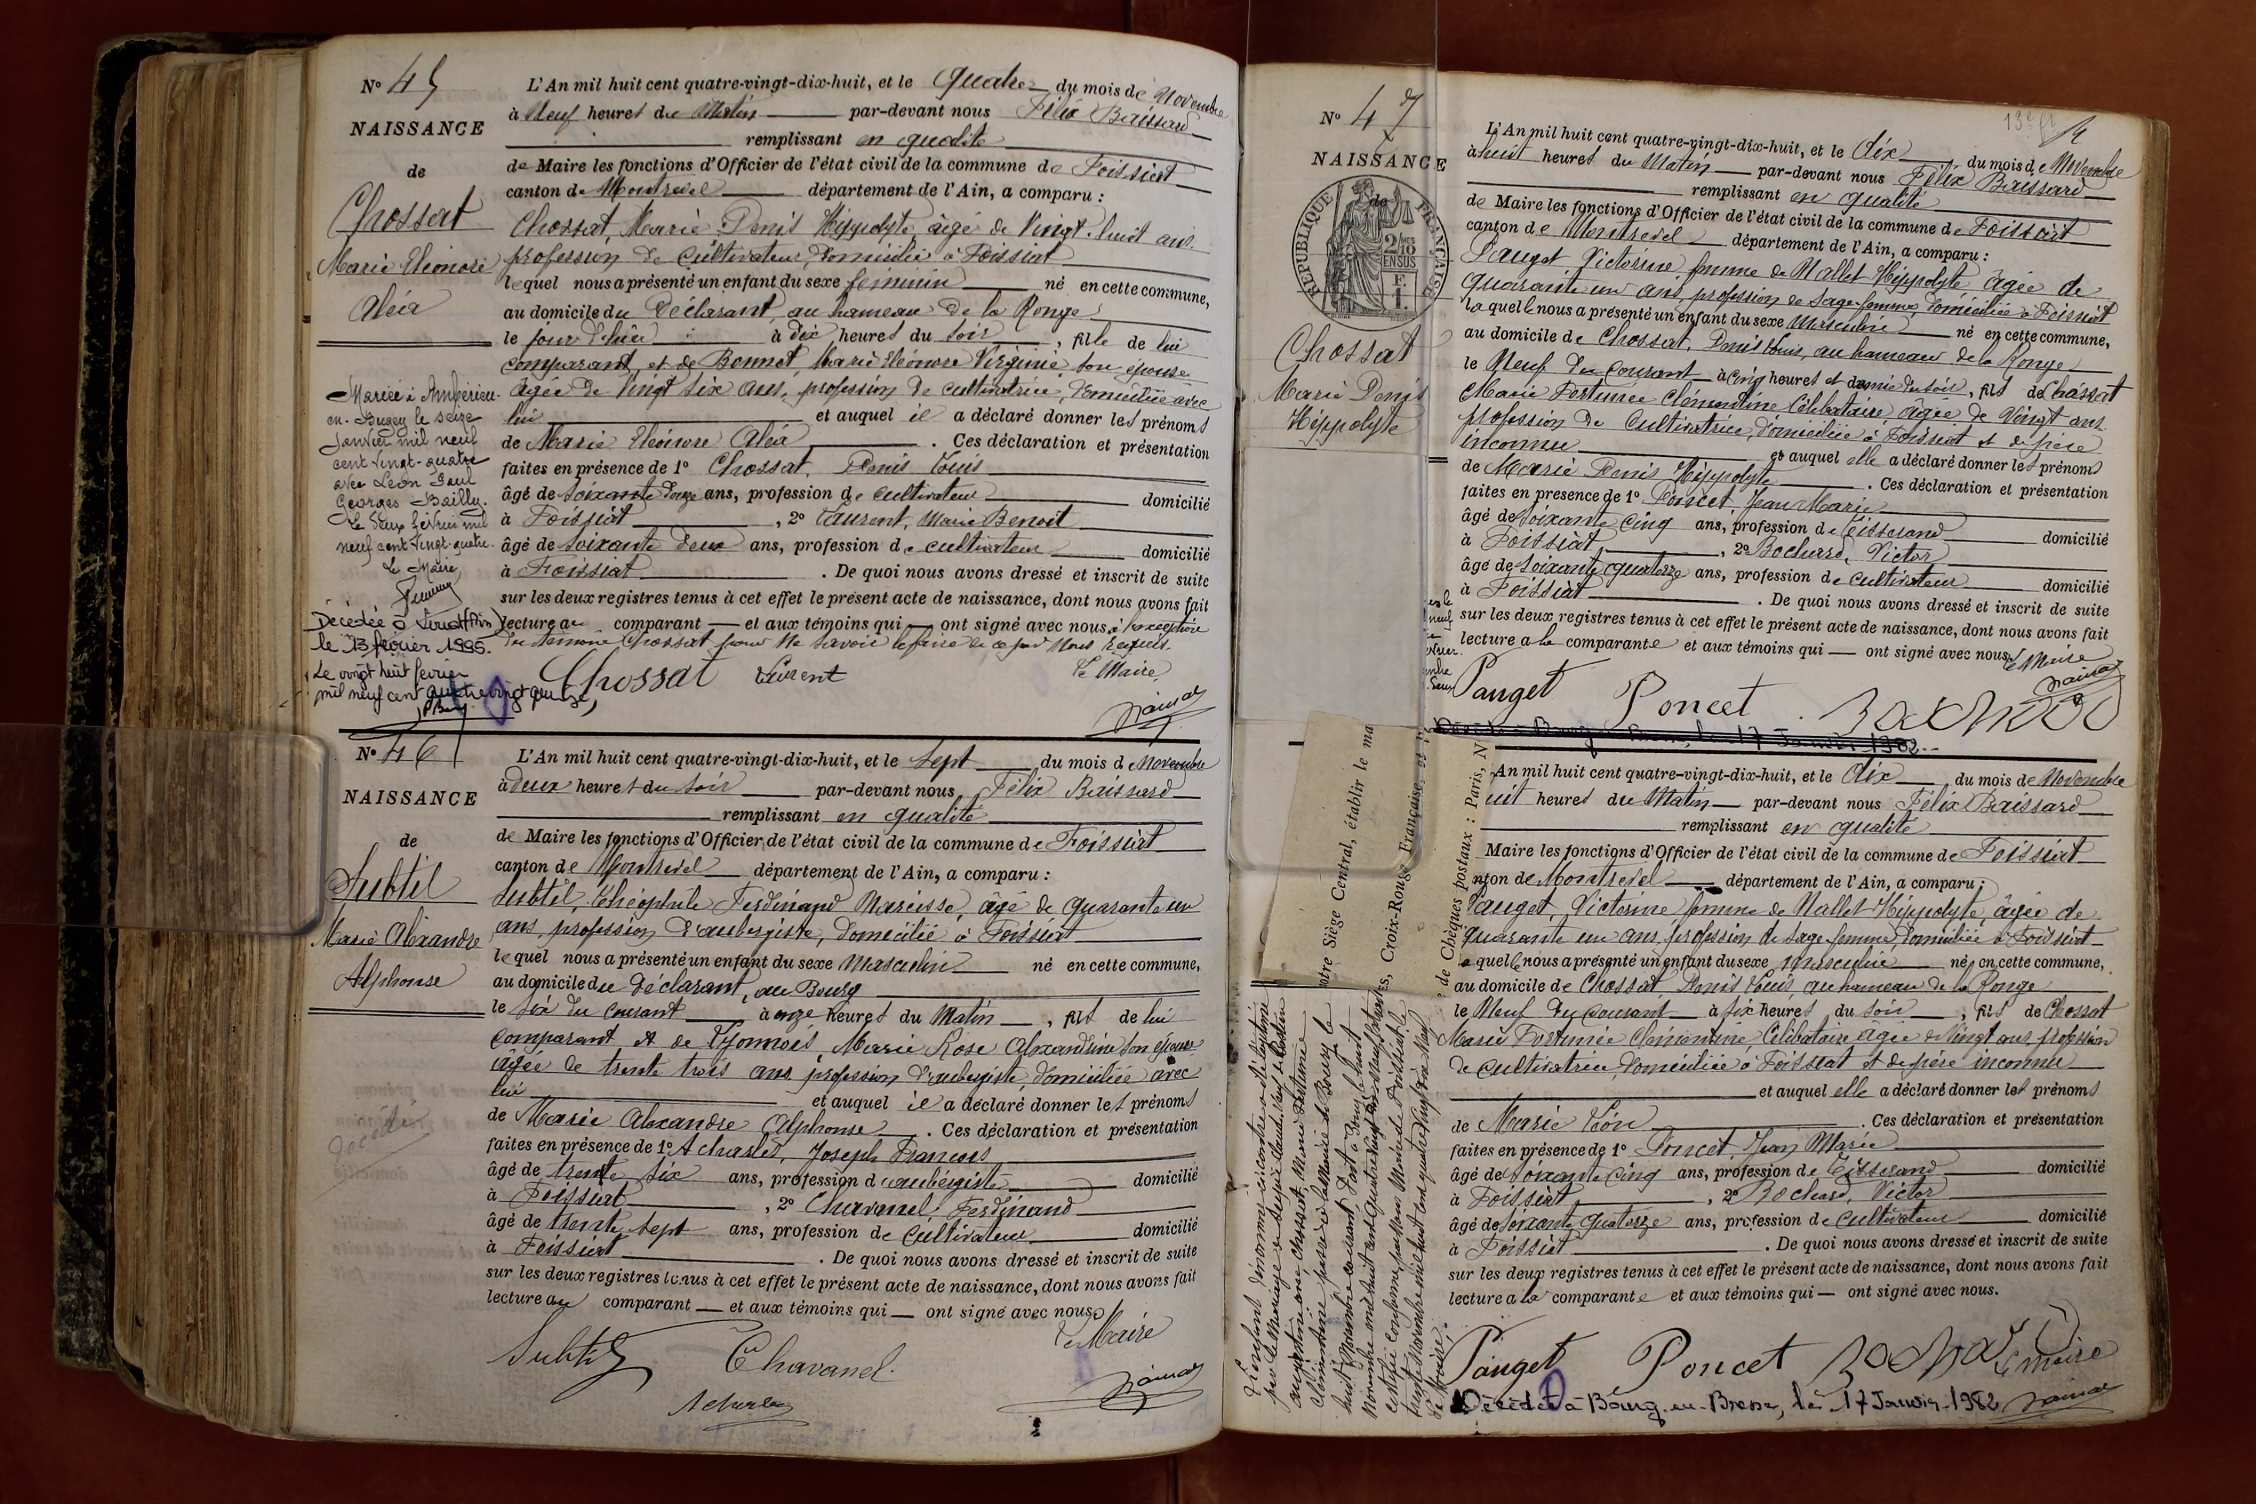 N° 45
NAISSANCE
de
Chossat
Marie Eléonore
Aléa
Mariée à Ambérieu-
en-Bugey le seize
Janvier mil neuf
cent vingt-quatre
avec Léon Paul
Georges Bailly.
Le deux février mil
neuf cent vingt-quatre.
Le Maire
Décédée à (Ain)
le 13 février 1995.
Le vingt huit février
mil neuf cent quatre vingt quinze,
L'An mil huit cent quatre-vingt-dix-huit, et le quatre du mois de Novembre
à Neuf heures du Matin par-devant nous Félix Baissard
remplissant en qualité
de Maire les fonctions d'Officier de l'état civil de la commune de Foissiat
canton de Montrevel département de l'Ain, a comparu :
Chossat, Marie Denis Hippolyte, âgé de Vingt-huit ans
profession de Cultivateur, domicilié à Foissiat
lequel nous a présenté un enfant du sexe féminin né en cette commune,
au domicile du Déclarant, au hameau de la Ronge
le jour d'hier à dix heures du soir, fille de lui
comparant, et de Bonnet, Marie Eléonore Virginie son épouse
âgée de Vingt six ans, profession de cultivatrice, domiciliée avec
lui et auquel il a déclaré donner les prénoms
de Marie Eléonore Aléa. Ces déclaration et présentation
faites en présence de 1° Chossat, Denis Louis
âgé de soixante douze ans, profession de cultivateur domicilié
à Foissiat, 2° Laurent, Marie Benoit
âgé de soixante deux ans, profession de cultivateur domicilié
à Foissiat. De quoi nous avons dressé et inscrit de suite
sur les deux registres tenus à cet effet le présent acte de naissance, dont nous avons fait
lecture au comparant et aux témoins qui ont signé avec nous à l'exception
du témoin Chossat pour ne savoir le faire de ce par Nous requis.
Chossat Laurent Le Maire,
N° 46
NAISSANCE
de
Subtil
Marie Alexandre
Alphonse
Décédé
L'An mil huit cent quatre-vingt-dix-huit, et le sept du mois de Novembre
à deux heures du soir par-devant nous Félix Baissard
remplissant en qualité
de Maire les fonctions d'Officier de l'état civil de la commune de Foissiat
canton de Montrevel département de l'Ain, a comparu :
Subtil, Théophile Ferdinand Narcisse, âgé de quarante un
ans, profession d'aubergiste, domicilié à Foissiat
lequel nous a présenté un enfant du sexe Masculin né en cette commune,
au domicile du déclarant, au Bourg
le six du courant à onze heures du Matin, fils de lui
comparant, et de Lyonnais, Marie Rose Alexandrine son épouse
âgée de trente trois ans profession d'aubergiste, domiciliée avec
lui et auquel il a déclaré donner les prénoms
de Marie Alexandre Alphonse. Ces déclaration et présentation
faites en présence de 1° Acharles, Joseph François
âgé de trente six ans, profession d'aubergiste domicilié
à Foissiat, 2° Chavanel, Ferdinand
âgé de trente sept ans, profession de cultivateur domicilié
à Foissiat. De quoi nous avons dressé et inscrit de suite
sur les deux registres tenus à cet effet le présent acte de naissance, dont nous avons fait
lecture au comparant et aux témoins qui ont signé avec nous
Subtil Chavanel Le Maire
Acharles
N° 47
NAISSANCE
de
RÉPUBLIQUE FRANÇAISE
2/10 EN SUS
Chossat
Marie Denis
Hippolyte
L'An mil huit cent quatre-vingt-dix-huit, et le dix du mois de Novembre
à huit heures du Matin par-devant nous Félix Baissard
remplissant en qualité
de Maire les fonctions d'Officier de l'état civil de la commune de Foissiat
canton de Montrevel département de l'Ain, a comparu :
Pauget Victorine, femme de Mallet Hippolyte âgée de
quarante un ans, profession de Sage-femme, domiciliée à Foissiat
laquelle nous a présenté un enfant du sexe Masculin né en cette commune,
au domicile de Chossat, Denis Louis, au hameau de la Ronge
le Neuf du courant à cinq heures et demie du soir, fils de Chossat
Marie Fortunée Clémentine Célibataire, âgée de Vingt ans
profession de Cultivatrice, domiciliée à Foissiat et de père
inconnu et auquel elle a déclaré donner les prénoms
de Marie Denis Hippolyte. Ces déclaration et présentation
faites en présence de 1° Poncet, Jean Marie
âgé de soixante cinq ans, profession de Tisserand domicilié
à Foissiat, 2° Bochard, Victor
âgé de soixante quatorze ans, profession de cultivateur domicilié
à Foissiat. De quoi nous avons dressé et inscrit de suite
sur les deux registres tenus à cet effet le présent acte de naissance, dont nous avons fait
lecture à la comparante et aux témoins qui ont signé avec nous. Le Maire
Pauget Poncet Bochard
17 Janvier 1982
otre Siège Central, établir le ma
s, Croix-Rouge Française et
de Chèques postaux : Paris, N
An mil huit cent quatre-vingt-dix-huit, et le dix du mois de Novembre
uit heures du Matin par-devant nous Félix Baissard
remplissant en qualité
Maire les fonctions d'Officier de l'état civil de la commune de Foissiat
nton de Montrevel département de l'Ain, a comparu :
Pauget, Victorine femme de Mallet Hippolyte, âgée de
quarante un ans, profession de Sage-femme, domiciliée à Foissiat
laquelle nous a présenté un enfant du sexe masculin né en cette commune,
au domicile de Chossat Denis Louis au hameau de la Ronge
le Neuf du courant à six heures du soir, fils de Chossat
Marie Fortunée Clémentine, Célibataire âgée de Vingt ans, profession
de cultivatrice, domiciliée à Foissiat et de père inconnu
et auquel elle a déclaré donner les prénoms
de Marie Léon. Ces déclaration et présentation
faites en présence de 1° Poncet, Jean Marie
âgé de soixante cinq ans, profession de Tisserand domicilié
à Foissiat, 2° Bochard, Victor
âgé de soixante quatorze ans, profession de cultivateur domicilié
à Foissiat. De quoi nous avons dressé et inscrit de suite
sur les deux registres tenus à cet effet le présent acte de naissance, dont nous avons fait
lecture à la comparante et aux témoins qui ont signé avec nous.
Pauget Poncet Bochard Le Maire
Décédé à Bourg-en-Bresse, le 17 Janvier 1982